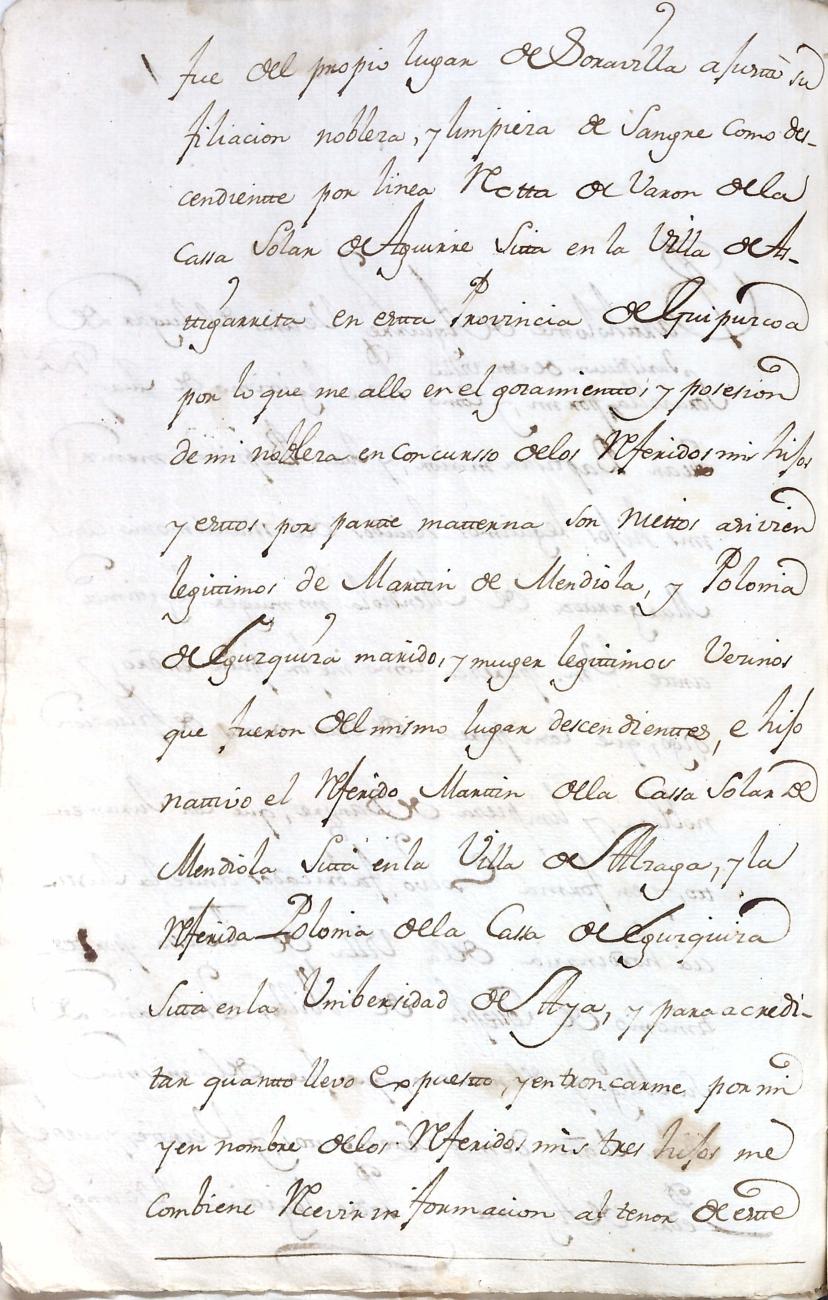 fue del propio lugar de Soravilla a su
filiacion nobleza, y limpieza de Sangre como des-
cendientte por linea Rectta de Varon de la
Cassa Solar de Aguirre Sitta en la Villa de At-
ttigarreta en estta Provincia de Guipuzcoa
por lo que me allo en el gozamientto, y posesion
de mi nobleza en concursso de los Rferidos mis hijos
y esttos por partte matterna son niettos
legittimos de Marttin de Mendiola, y Polonia
de Egurquiza marido, y muger legittimos Vezinos
que fueron del mismo lugar descendienttes, e hijo
nattivo el Rferido Marttin de la Cassa Solar de
Mendiola Sitta en la Villa de Alzaga, y la
Rferida Polonia de la Cassa de Egurquiza
Sitta en la Unibersidad de Aya, y para acredi-
tar quantto llevo Expuestto, y entroncarme por mi
y en nombre de los Rferidos mis tres hijos me
Combiene Rcevir informacion al tenor de estte